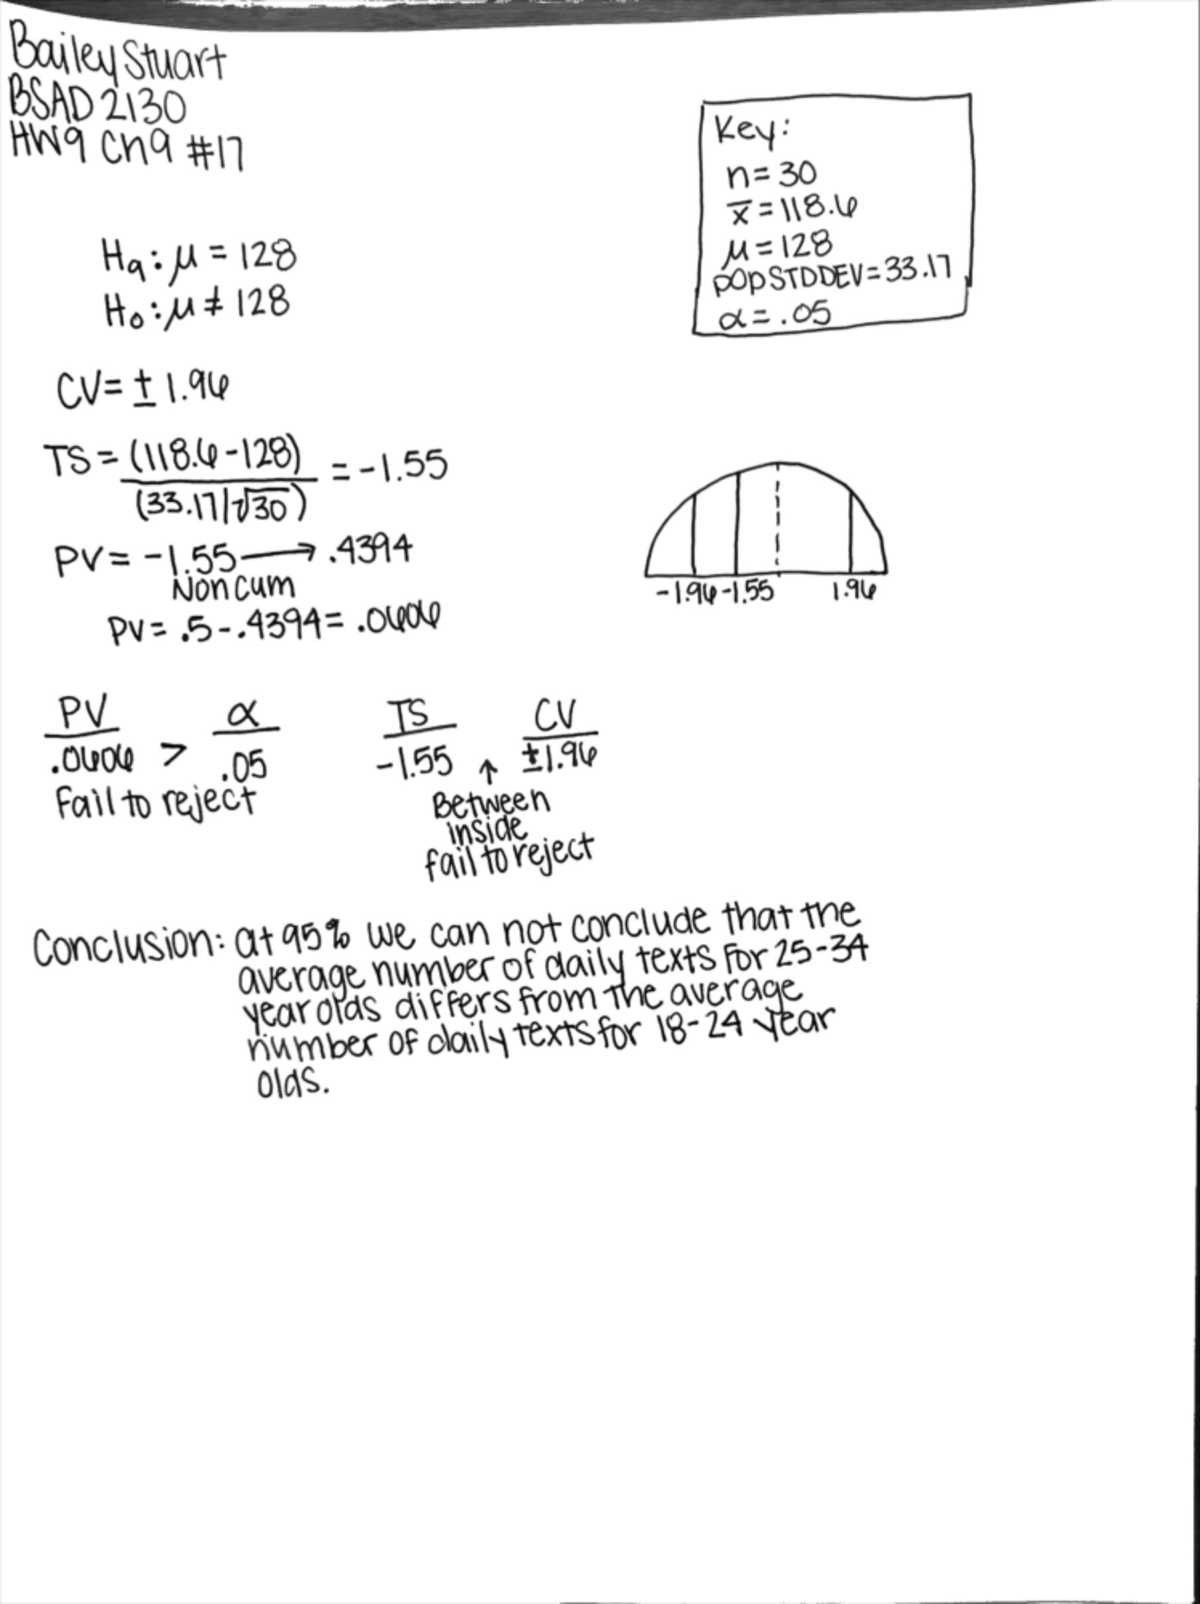 Bailey Stuart
BSAD 2130
HW9 Ch9 #17
Key:
n = 30
x̅ = 118.6
μ = 128
POP STD DEV = 33.17
α = .05
Ha: μ = 128
Ho: μ ≠ 128
CV = ± 1.96
TS = (118.6 - 128) = -1.55
(33.17/√30)
PV = -1.55 → .4394
Non cum
PV = .5 - .4394 = .0606
-1.96 -1.55 1.96
PV α TS CV
.0606 > .05 -1.55 ↑ ±1.96
Fail to reject
Between
inside
fail to reject
Conclusion: at 95% we can not conclude that the
average number of daily texts for 25-34
year olds differs from the average
number of daily texts for 18-24 year
olds.